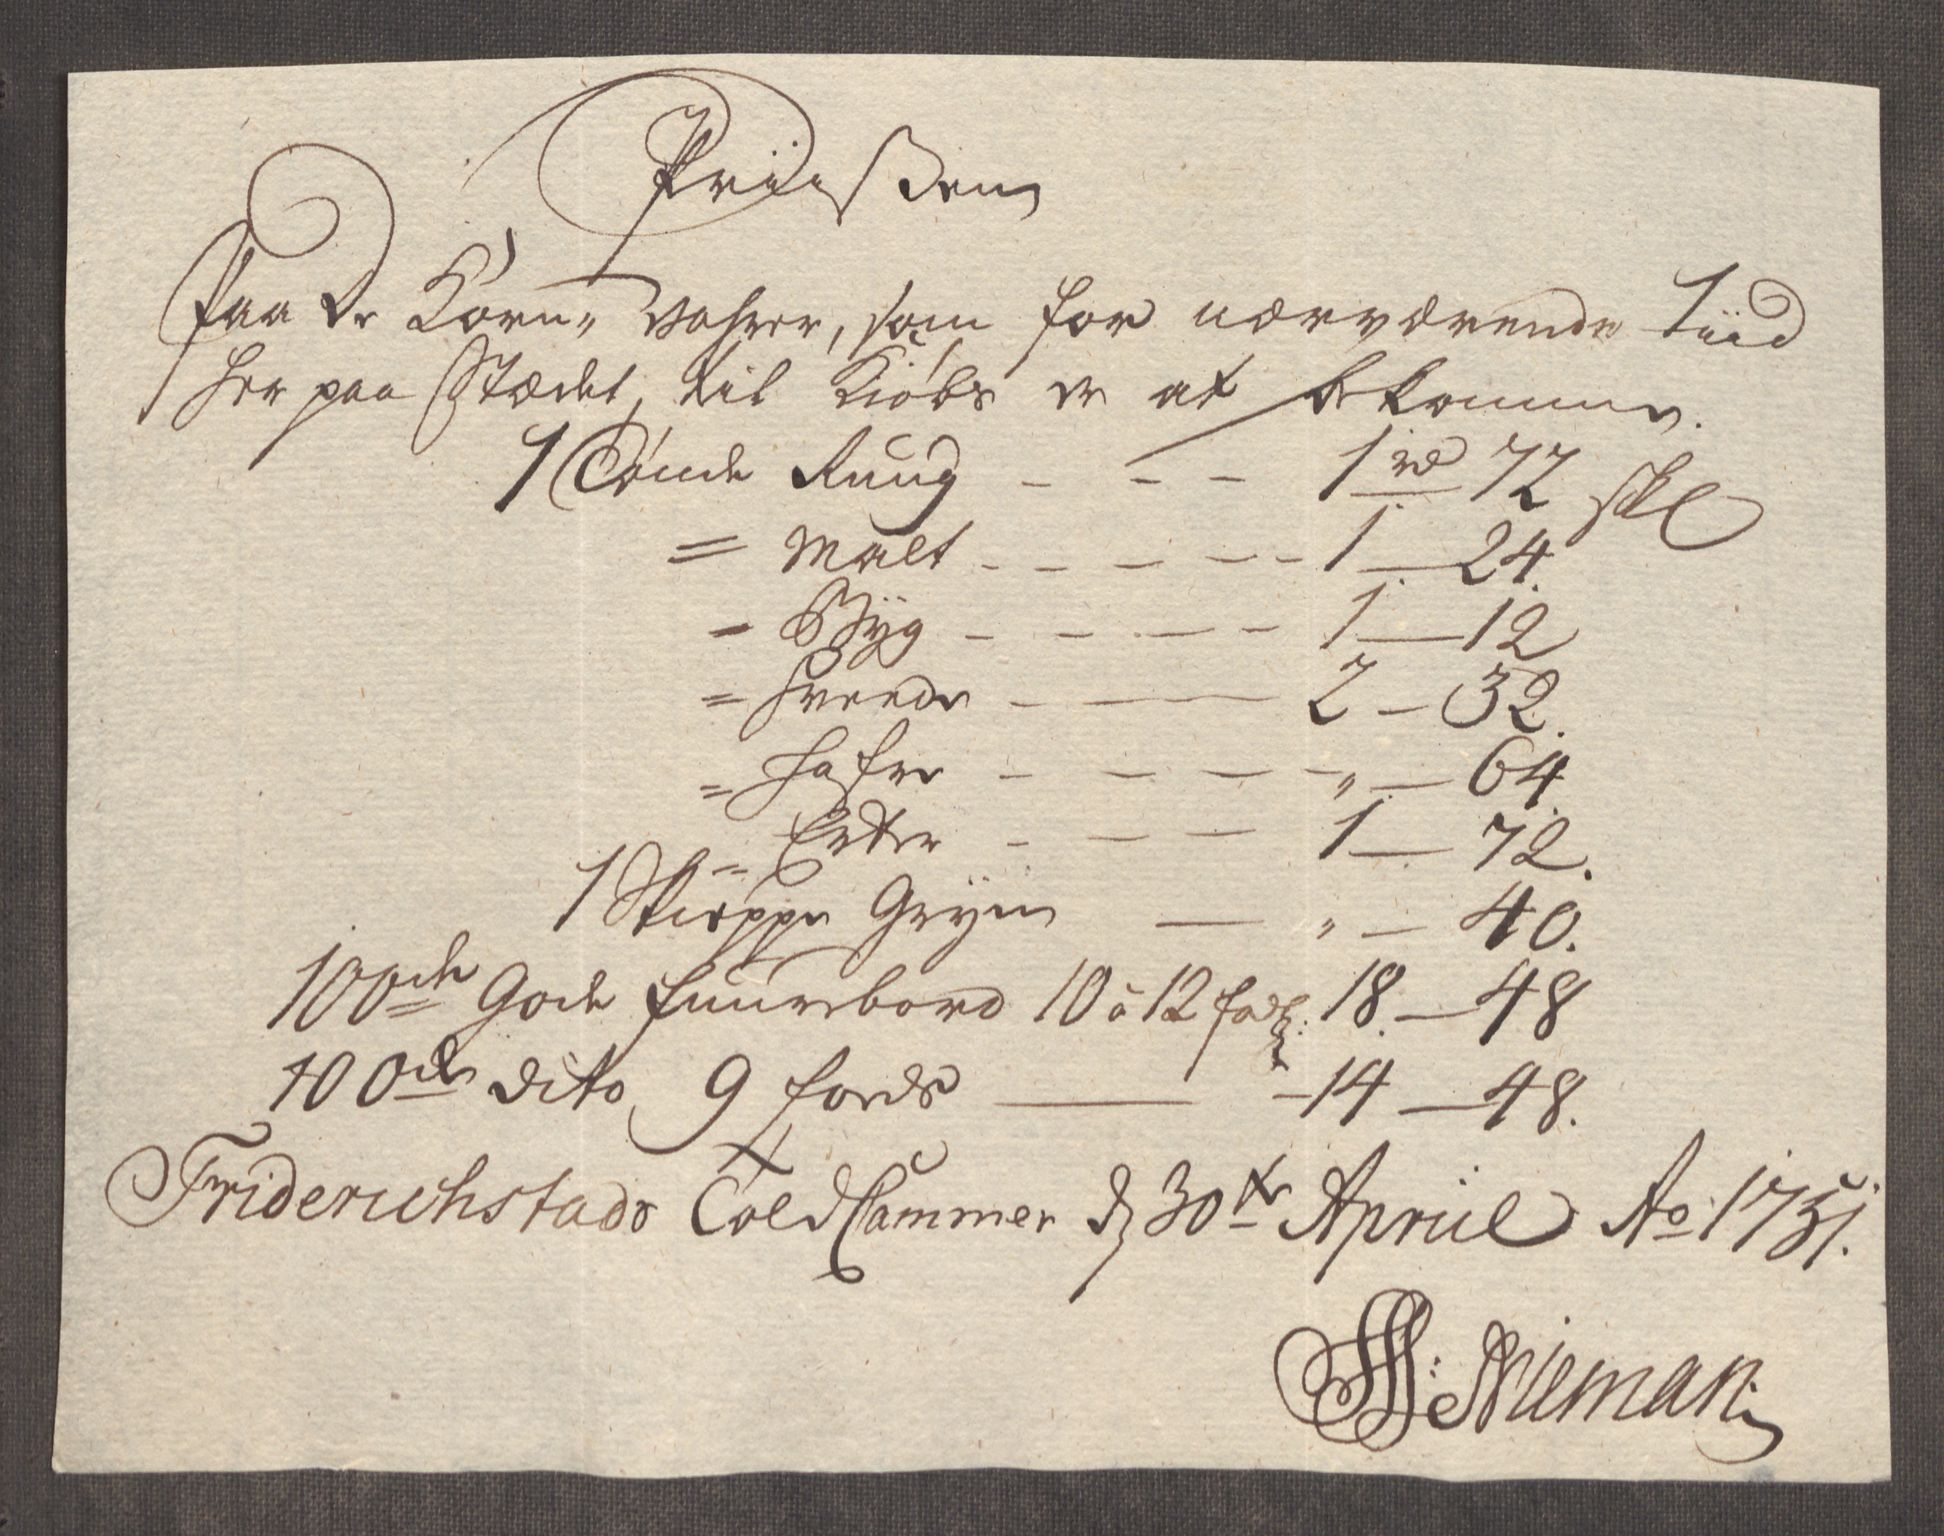 Priisßen
Paa de Korn„ Vahrer, som for nærværende Tiid
her paa Stædet, til Kiøbs er at bekomme.
1 Tønde Ruug - - - 1 rd 72 skl
= Malt - - - - - 1 — 24.
= Byg - - - - 1 — 12
= Hvede - — — 2 — 32.
= Hafre - - - - „ — 64.
= Erter - - - 1 — 72.
1 Skieppe Gryen — „ — 40.
100de Gode fuurebord 10 à 12 fods: 18. — 48
100de dito 9 fods — 14 — 48.
Friderichstads Told Cammer d 30te Apriil Ao 1751.
Nieman